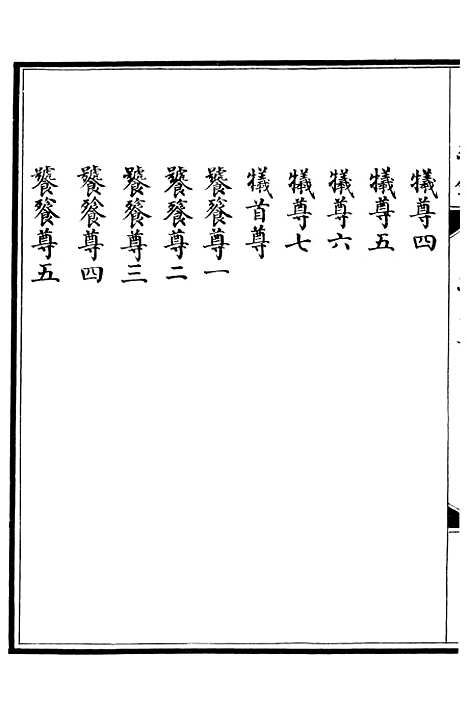 犧尊四
犧尊五
犧尊六
犧尊七
犧首尊
饕餮尊一
饕餮尊二
饕餮尊三
饕餮尊四
饕餮尊五